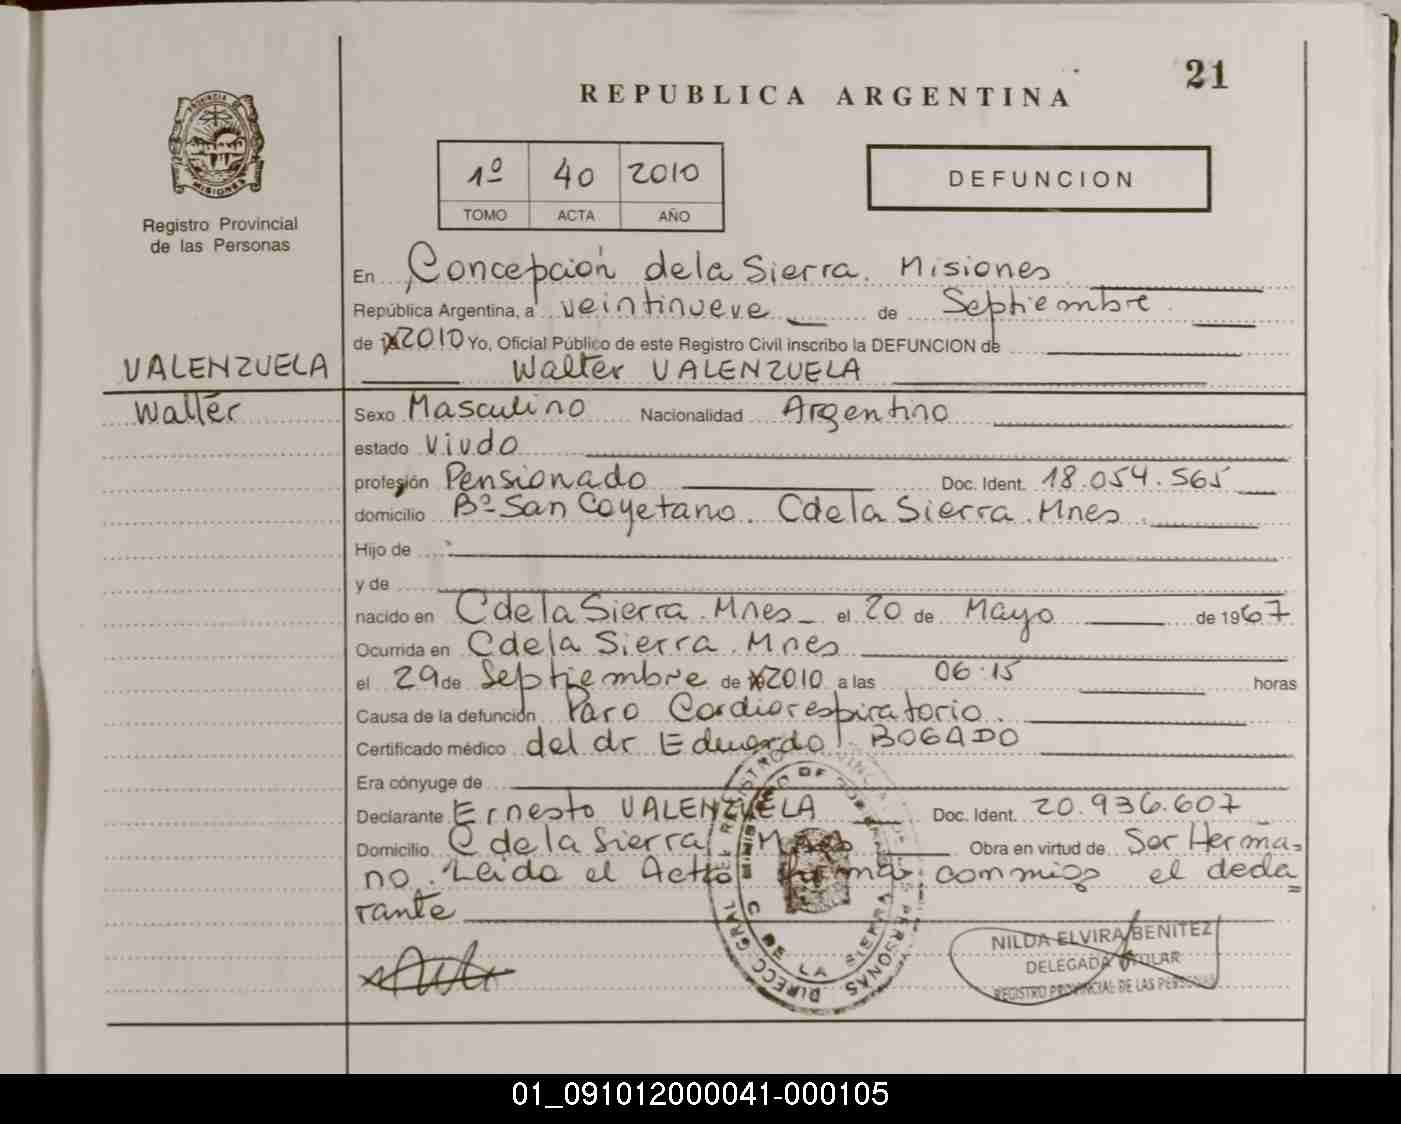 21
REPUBLICA ARGENTINA
PROVINCIA DE
MISIONES
Registro Provincial
de las Personas
1º 40 2010
TOMO ACTA AÑO
DEFUNCION
En Concepción de la Sierra. Misiones
República Argentina, a veintinueve de Septiembre
de 2010 Yo, Oficial Público de este Registro Civil inscribo la DEFUNCION de
VALENZUELA
Walter VALENZUELA
Walter
Sexo Masculino Nacionalidad Argentino
estado Viudo
profesión Pensionado Doc. Ident. 18.054.565
domicilio Bº San Cayetano. C de la Sierra. Mnes.
Hijo de
y de
nacido en C de la Sierra. Mnes el 20 de Mayo de 1967
Ocurrida en C de la Sierra. Mnes
el 29 de Septiembre de 2010 a las 06.15 horas
Causa de la defunción Paro Cardiorespiratorio.
Certificado médico del dr Eduardo BOGADO
Era cónyuge de
Declarante Ernesto VALENZUELA Doc. Ident. 20.936.607
Domicilio C de la Sierra Mnes Obra en virtud de Ser Herma=
no. Leida el Acta firma conmigo el decla
=
rante
C DE LA SIERRA
DIRECC GRAL
NILDA ELVIRA BENITEZ
DELEGADA TITULAR
REGISTRO PROVINCIAL DE LAS PERSONAS
01_091012000041-000105